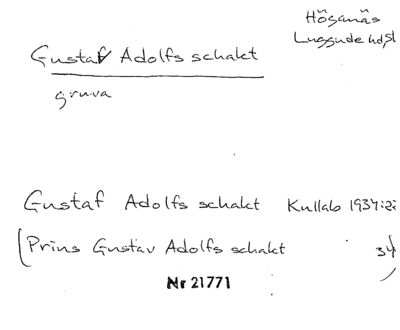 Höganäs
Luggude hd, Sk
Gustaf Adolfs schakt
gruva
Gustaf Adolfs schakt Kullab 1934:22
(Prins Gustav Adolfs schakt 34)
Nr 21771